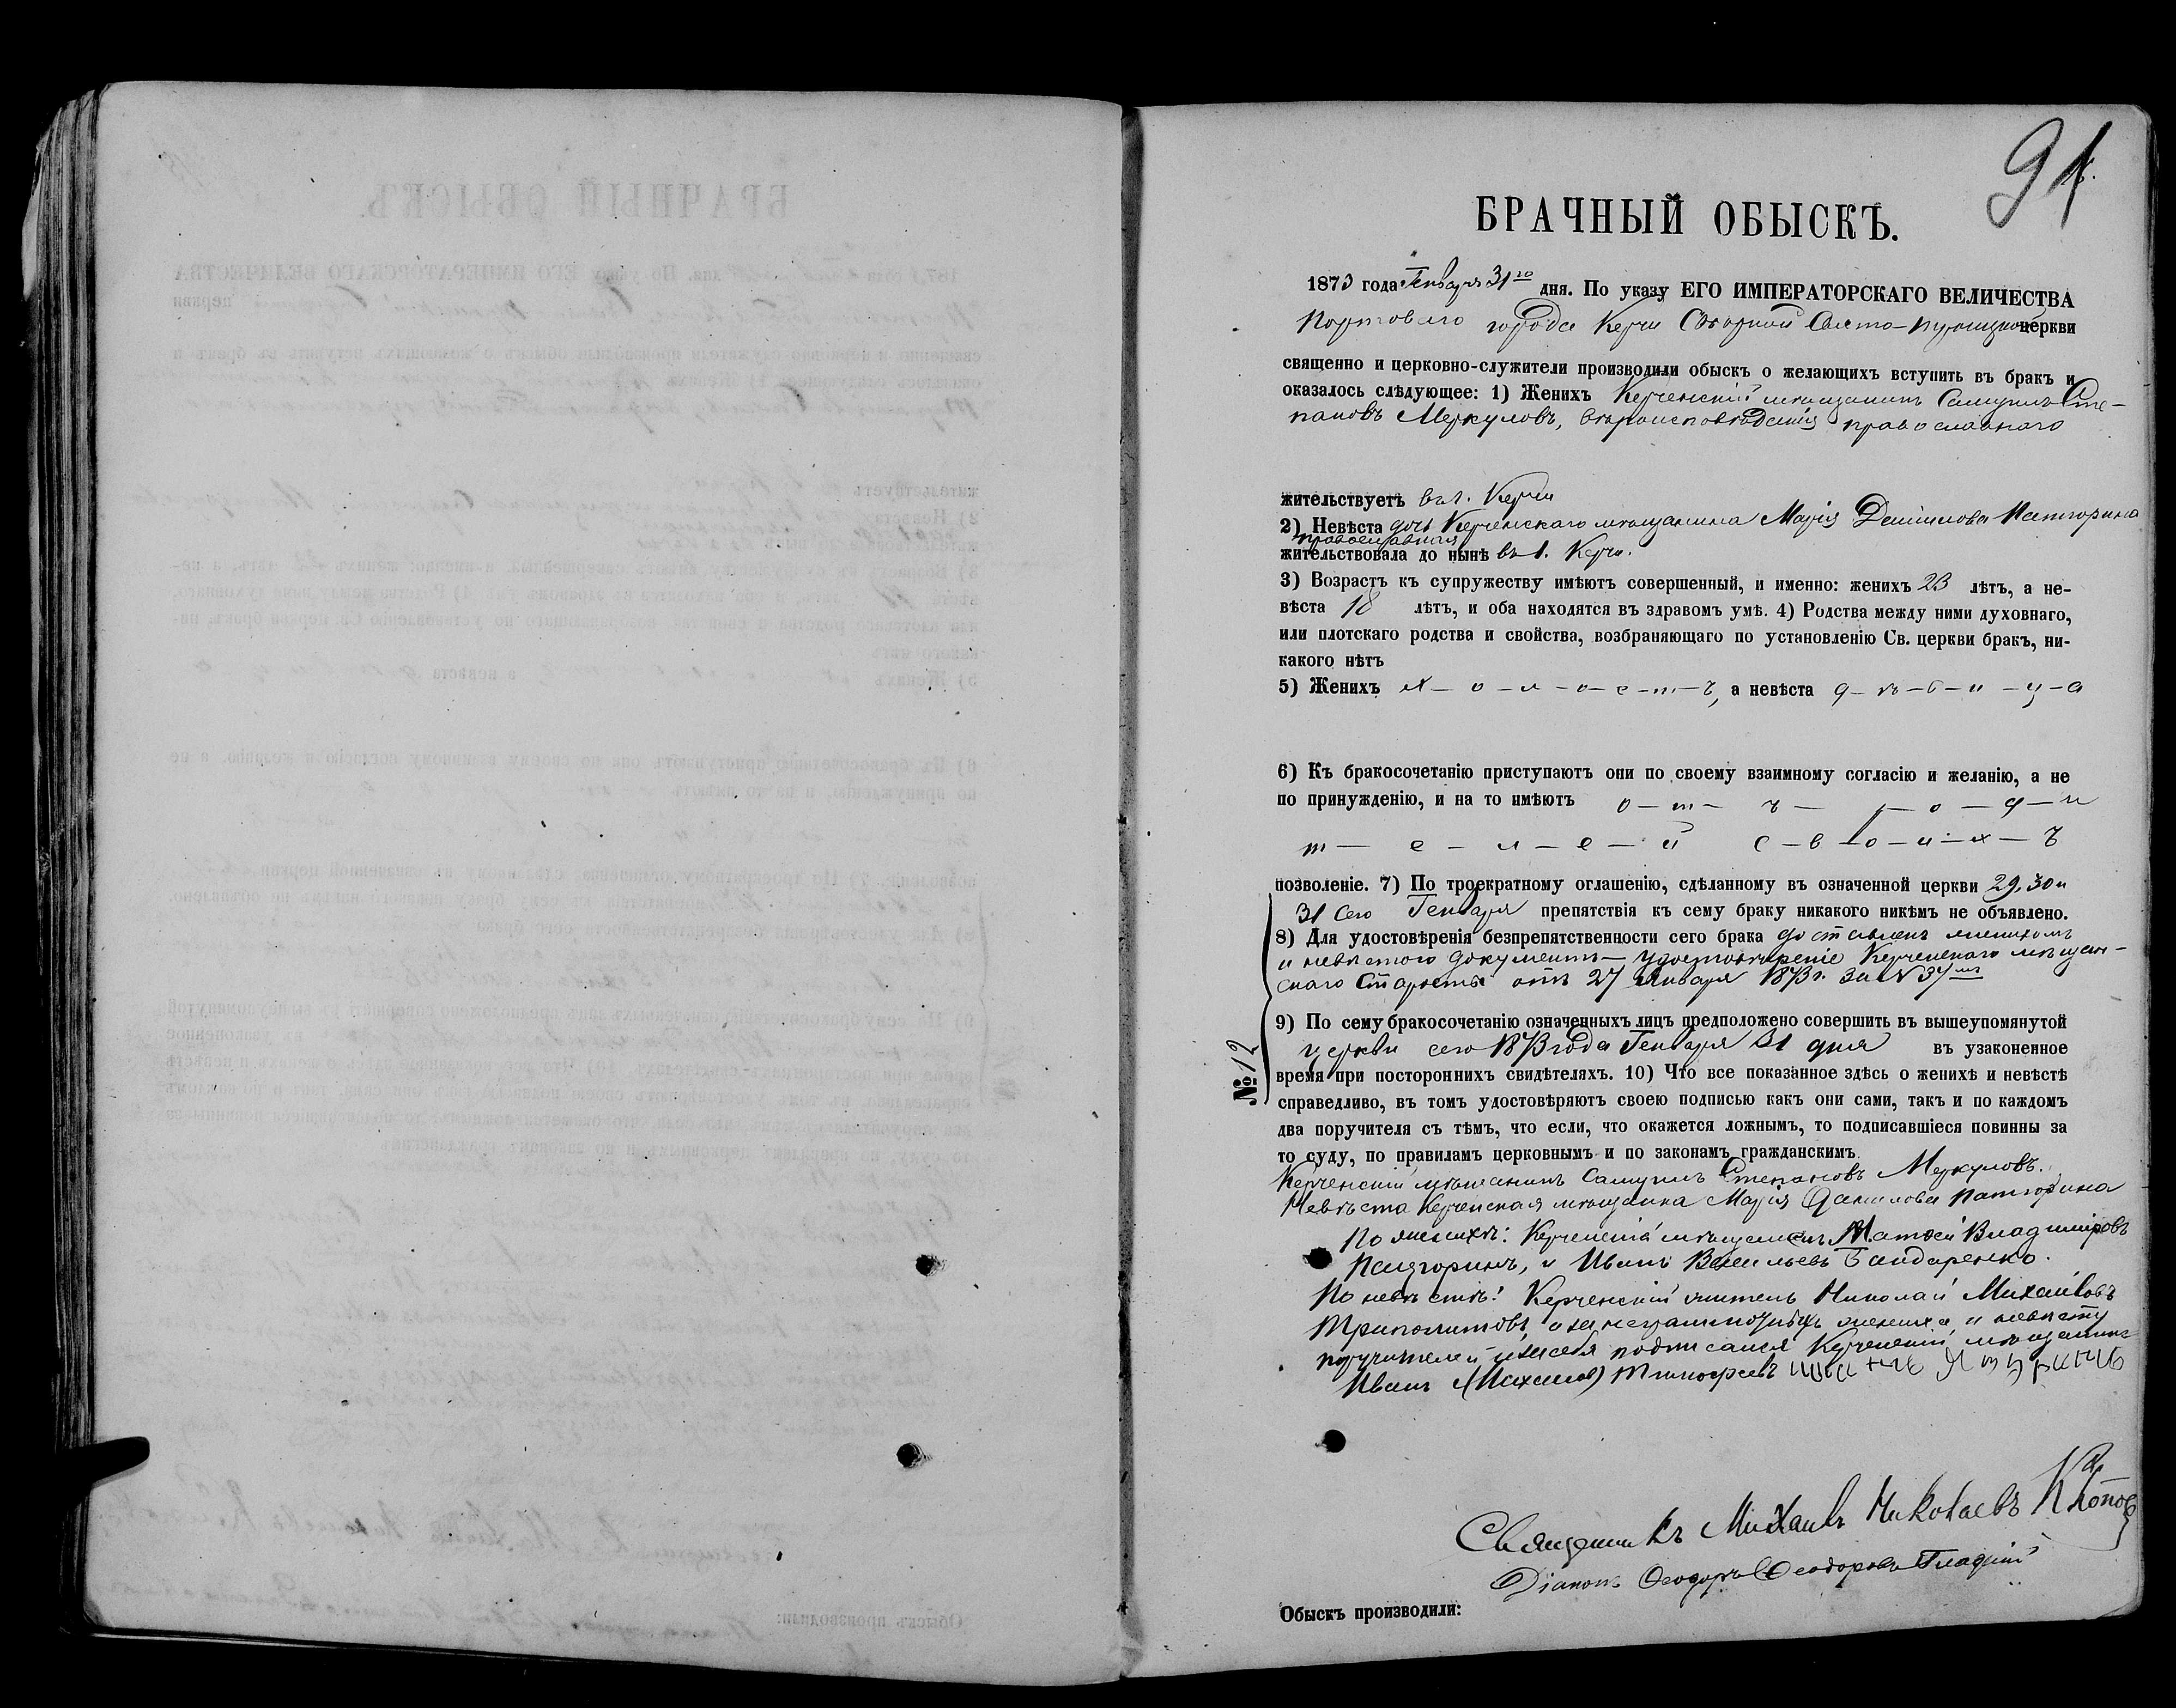 91
БРАЧНЫЙ ОБЫСКЪ.
1873 года Генваря 31го дня. По указу ЕГО ИМПЕРАТОРСКАГО ВЕЛИЧЕСТВА
Портоваго города Керчи Соборной Свято-Троицкой церкви
священно и церковно-служители производили обыскъ о желающихъ вступить въ бракъ и
оказалось слѣдующее: 1) Женихъ Керченскій мѣщанинъ Самуилъ Сте-
пановъ Меркуловъ, вѣроисповѣданія православнаго
жительствуетъ въ г. Керчи
2) Невѣста дочь Керченскаго мѣщанина Марія Данилова
православная
жительствовала до нынѣ въ г. Керчи.
3) Возрастъ къ супружеству имѣютъ совершенный, и именно: женихъ 23 лѣтъ, а не-
вѣста 18 лѣтъ, и оба находятся въ здравомъ умѣ. 4) Родства между ними духовнаго,
или плотскаго родства и свойства, возбраняющаго по установленію Св. церкви бракъ, ни-
какого нѣтъ
5) Женихъ х-о-л-о-с-т-ъ, а невѣста д-ѣ-в-и-ц-а
6) Къ бракосочетанію приступаютъ они по своему взаимному согласію и желанію, а не
по принужденію, и на то имѣютъ о-т-ъ р-о-д-и
т-е-л-е-й с-в-о-и-х-ъ
позволеніе. 7) По троекратному оглашенію, сдѣланному въ означенной церкви 29, 30 и
31 сего Генваря препятствія къ сему браку никакого никѣмъ не объявлено.
8) Для удостовѣренія безпрепятственности сего брака доставленъ женихомъ
и невѣстою документъ - удостовѣреніе Керченскаго мѣщан-
скаго Старосты отъ 27 Января 1873 г. за № 37мъ
9) По сему бракосочетанію означенныхъ лицъ предположено совершить въ вышеупомянутой
церкви сего 1873 года Генваря 31 дня въ узаконенное
№ 12
время при постороннихъ свидѣтеляхъ. 10) Что все показанное здѣсь о женихѣ и невѣстѣ
справедливо, въ томъ удостовѣряютъ своею подписью какъ они сами, такъ и по каждомъ
два поручителя съ тѣмъ, что если, что окажется ложнымъ, то подписавшіеся повинны за
то суду, по правиламъ церковнымъ и по законамъ гражданскимъ.
Керченскій мѣщанинъ Самуилъ Степановъ Меркуловъ.
Невѣста Керченская мѣщанка Марія Данилова
По женихѣ: Керченскій мѣщанинъ Матѳей Владиміровъ
и Иванъ Васильевъ Бандаренко.
По невѣстѣ: Керченскій житель Николай Михайловъ
Триполитовъ, а за неграмотныхъ жениха и невѣсту
поручителей и за себя подписался Керченскій мѣщанинъ
Иванъ (Михаиловъ) Тимофеевъ
Священникъ Михаилъ Николаевъ
Діаконъ Ѳеодоръ Ѳеодоровъ Гладкій
Обыскъ производили: